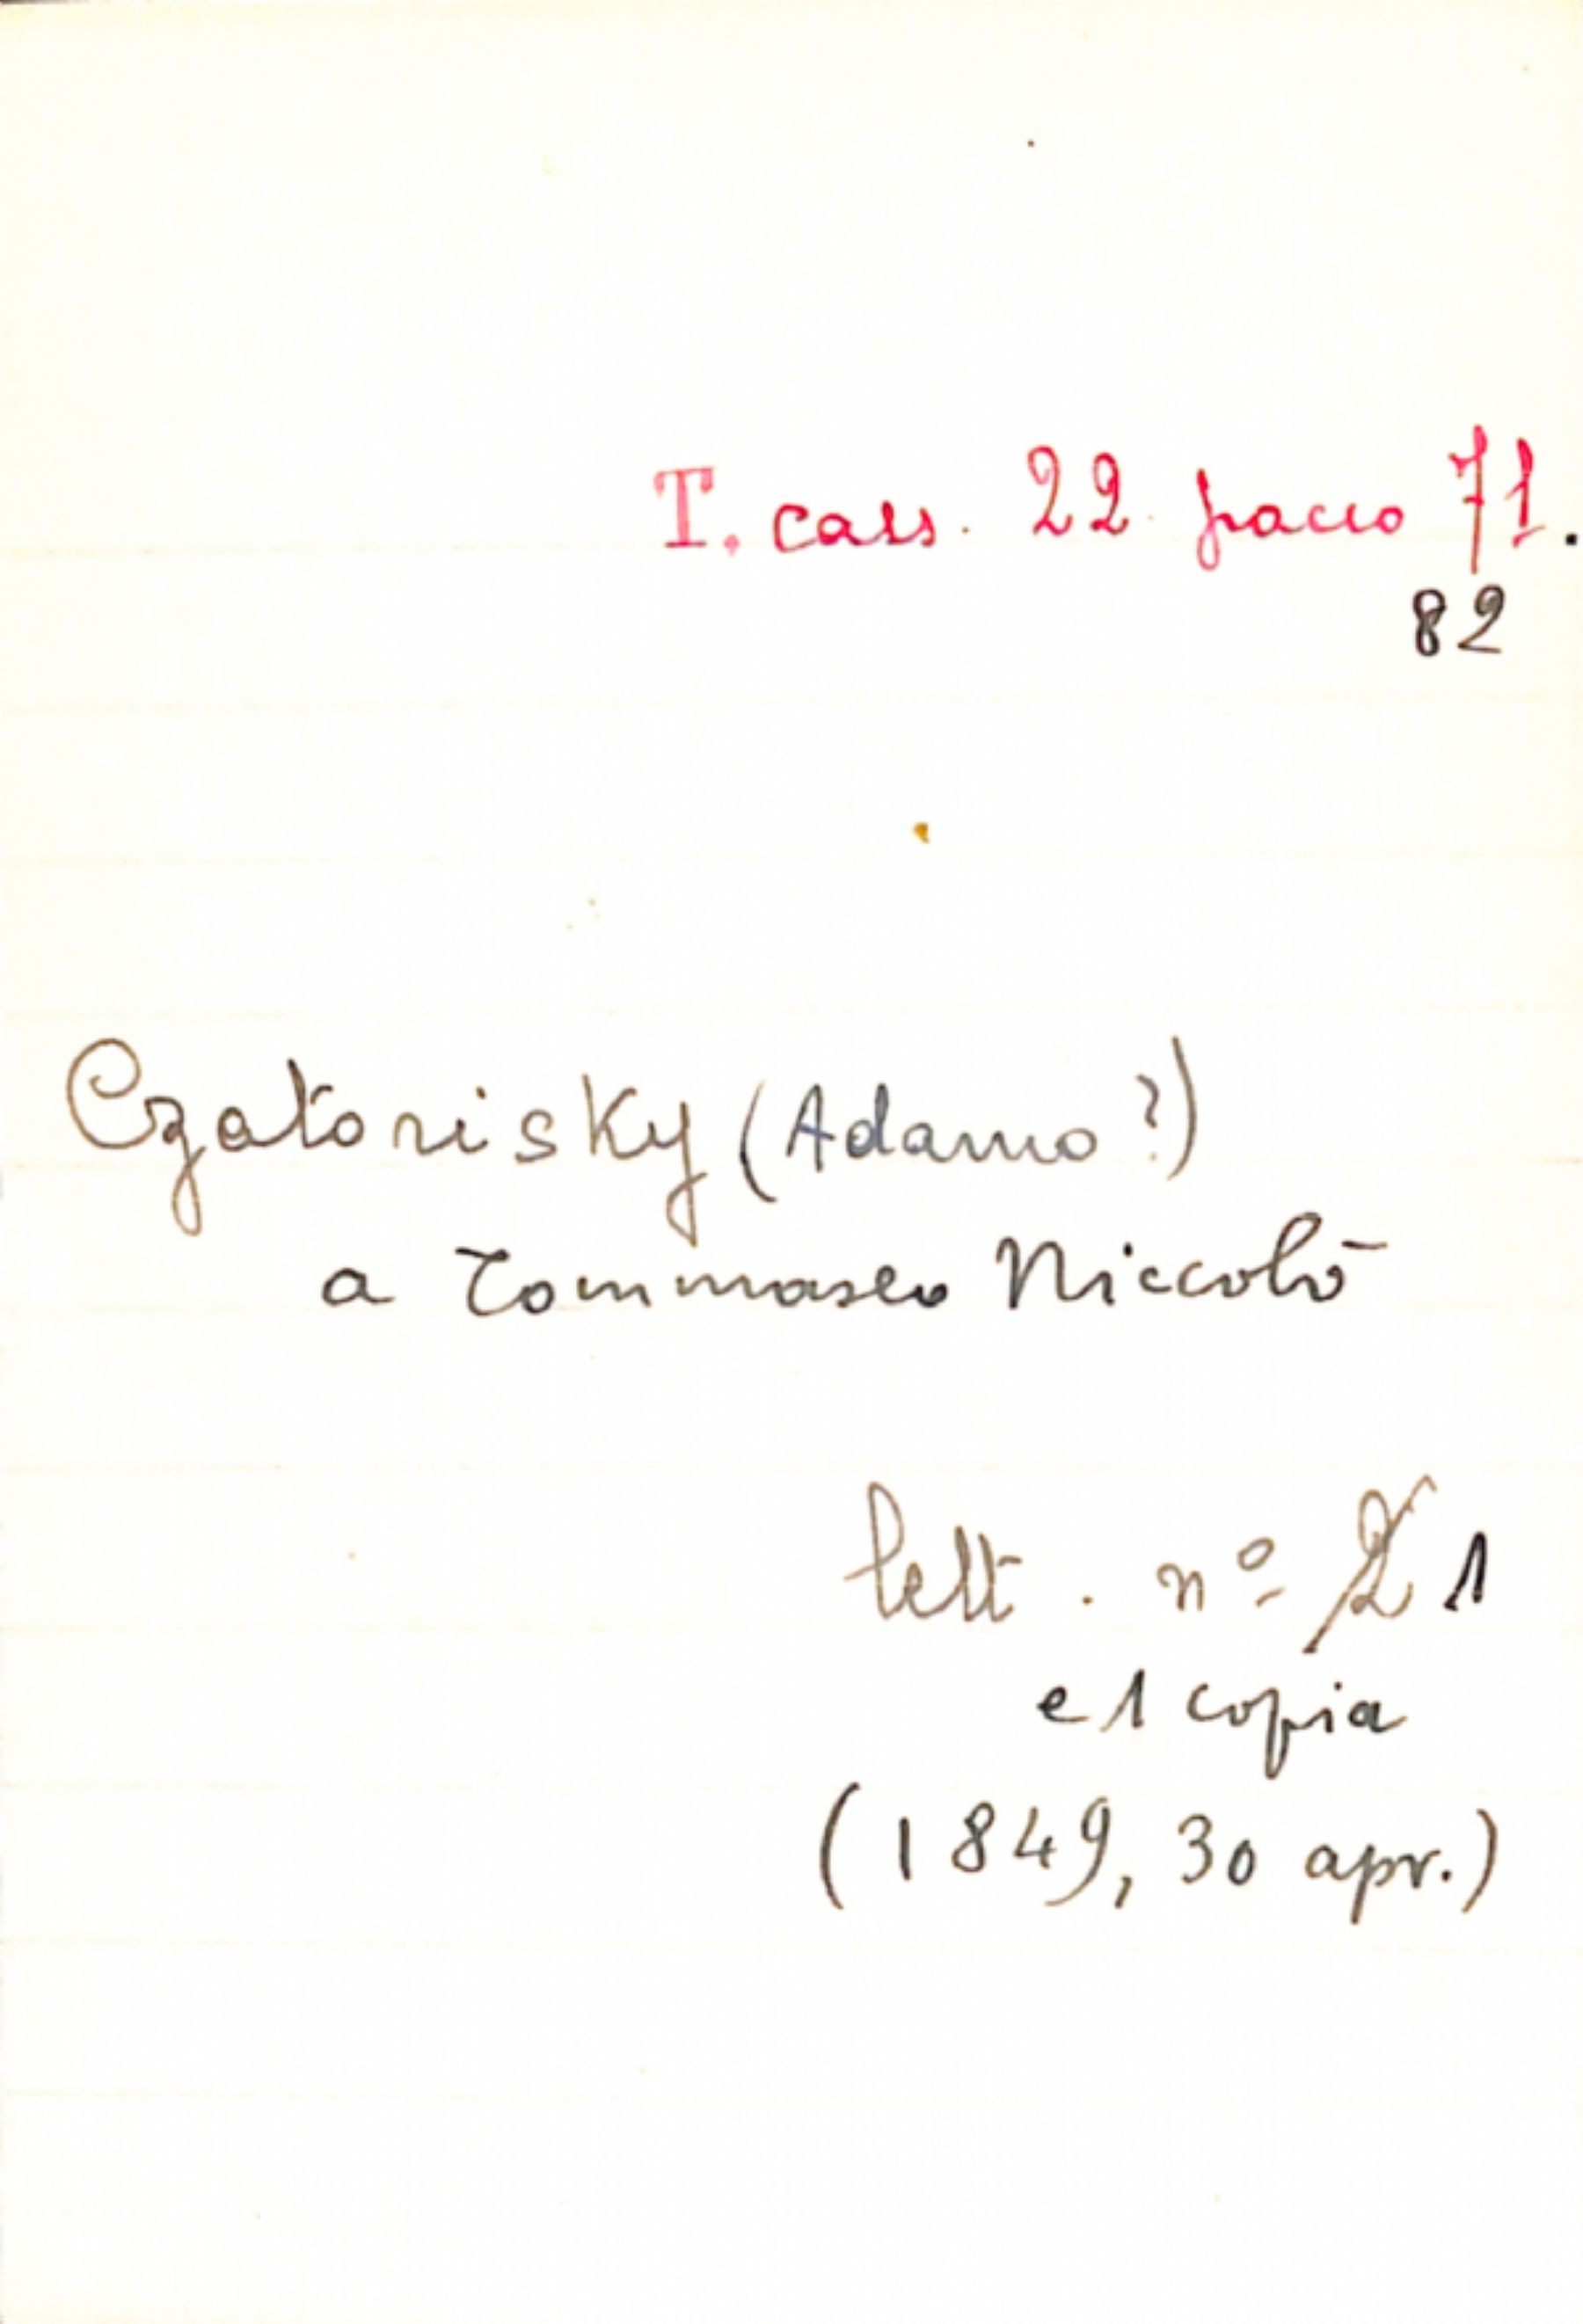 T. cass. 22 pacco 71.
82
Czatorisky (Adamo?)
a Tommaseo Niccolò
lett. nº 2 1
e 1 copia
(1849, 30 apr.)